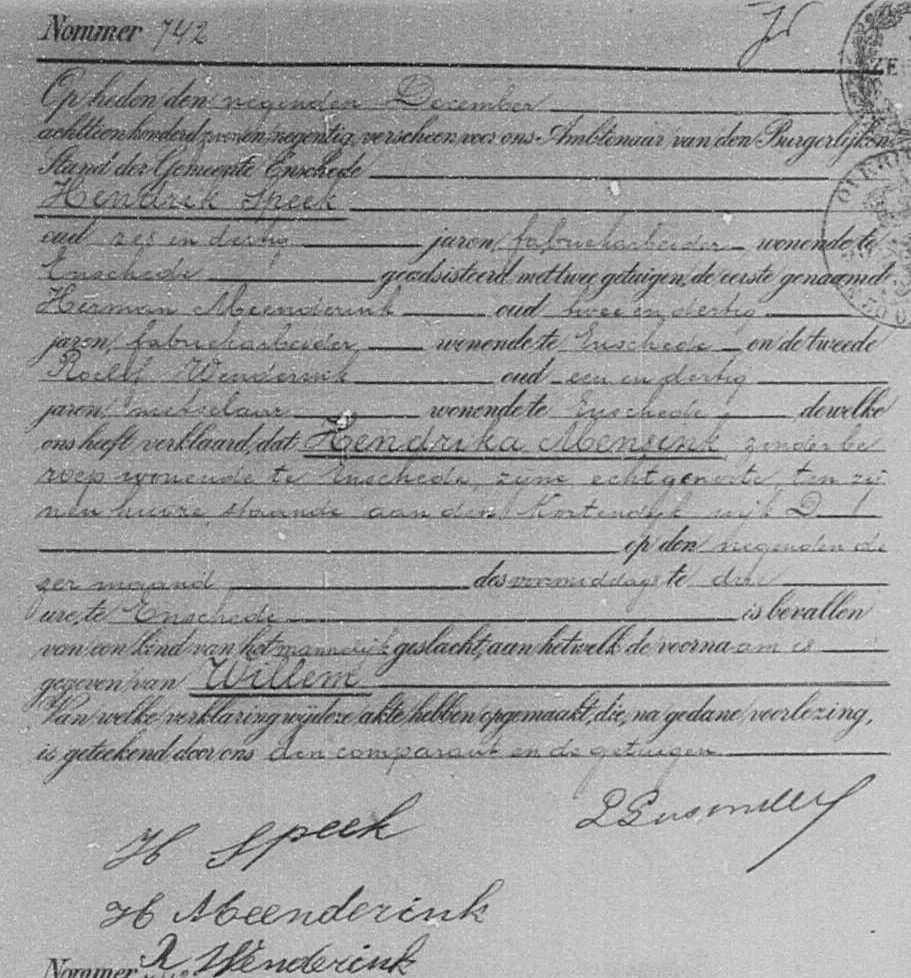 Nommer 742
Op heden den negenden December
achttienhonderd zeven negentig, verscheen voor ons Ambtenaar van den Burgerlijken
Stand der Gemeente Enschede
Hendrik Speek
oud zes en dertig jaren, fabriekarbeider wonende te
Enschede geadsisteerd met twee getuigen, de eerste genaamd
Herman Meenderink oud twee en dertig
jaren, fabriekarbeider wonende te Enschede en de tweede
Roelof Wenderink oud een en dertig
jaren, metselaar wonende te Enschede, dewelke
ons heeft verklaard, dat Hendrika Mensink, zonder be
roep wonende te Enschede, zijne echtgenoote, ten zij
nen huize staande aan den Kortendijk wijk D
op den negenden de
zer maand des voormiddags te drie
ure, te Enschede is bevallen
van een kind van het mannelijk geslacht, aan hetwelk de voornaam is
gegeven van Willem
Van welke verklaring wij deze akte hebben opgemaakt, die, na gedane voorlezing,
is geteekend door ons den comparant en de getuigen
H Speek
H Meenderink
R Wenderink
Nommer